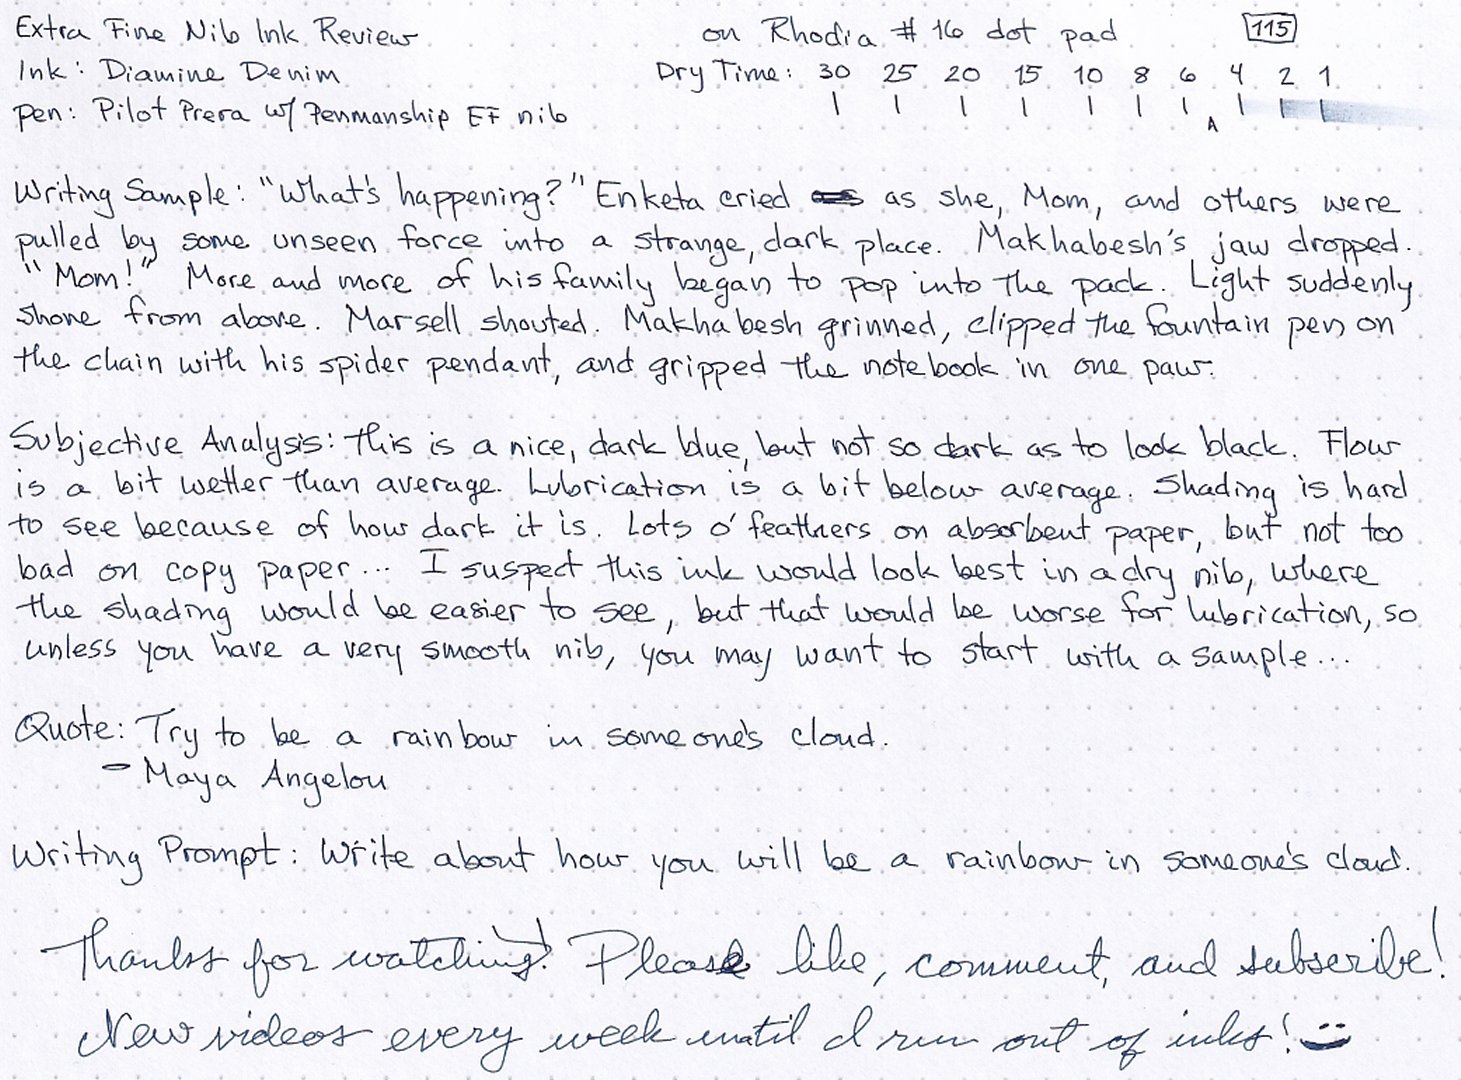 Extra Fine Nib Ink Review
on Rhodia # 16 dot pad
115
Ink: Diamine Denim
Dry Time: 30 25 20 15 10 8 6 4 2 1
Pen: Pilot Prera w/ Penmanship EF nib
A
Writing Sample: "What's happening?" Enketa cried as she, Mom, and others were
pulled by some unseen force into a strange, dark place. Makhabesh's jaw dropped.
"Mom!" More and more of his family began to pop into the pack. Light suddenly
shone from above. Marsell shouted. Makhabesh grinned, clipped the fountain pen on
the chain with his spider pendant, and gripped the notebook in one paw.
Subjective Analysis: This is a nice, dark blue, but not so dark as to look black. Flow
is a bit wetter than average. Lubrication is a bit below average. Shading is hard
to see because of how dark it is. Lots o' feathers on absorbent paper, but not too
bad on copy paper... I suspect this ink would look best in a dry nib, where
the shading would be easier to see, but that would be worse for lubrication, so
unless you have a very smooth nib, you may want to start with a sample...
Quote: Try to be a rainbow in someone's cloud.
- Maya Angelou
Writing Prompt: Write about how you will be a rainbow in someone's cloud.
Thanks for watching! Please like, comment, and subscribe!
New videos every week until I run out of inks!